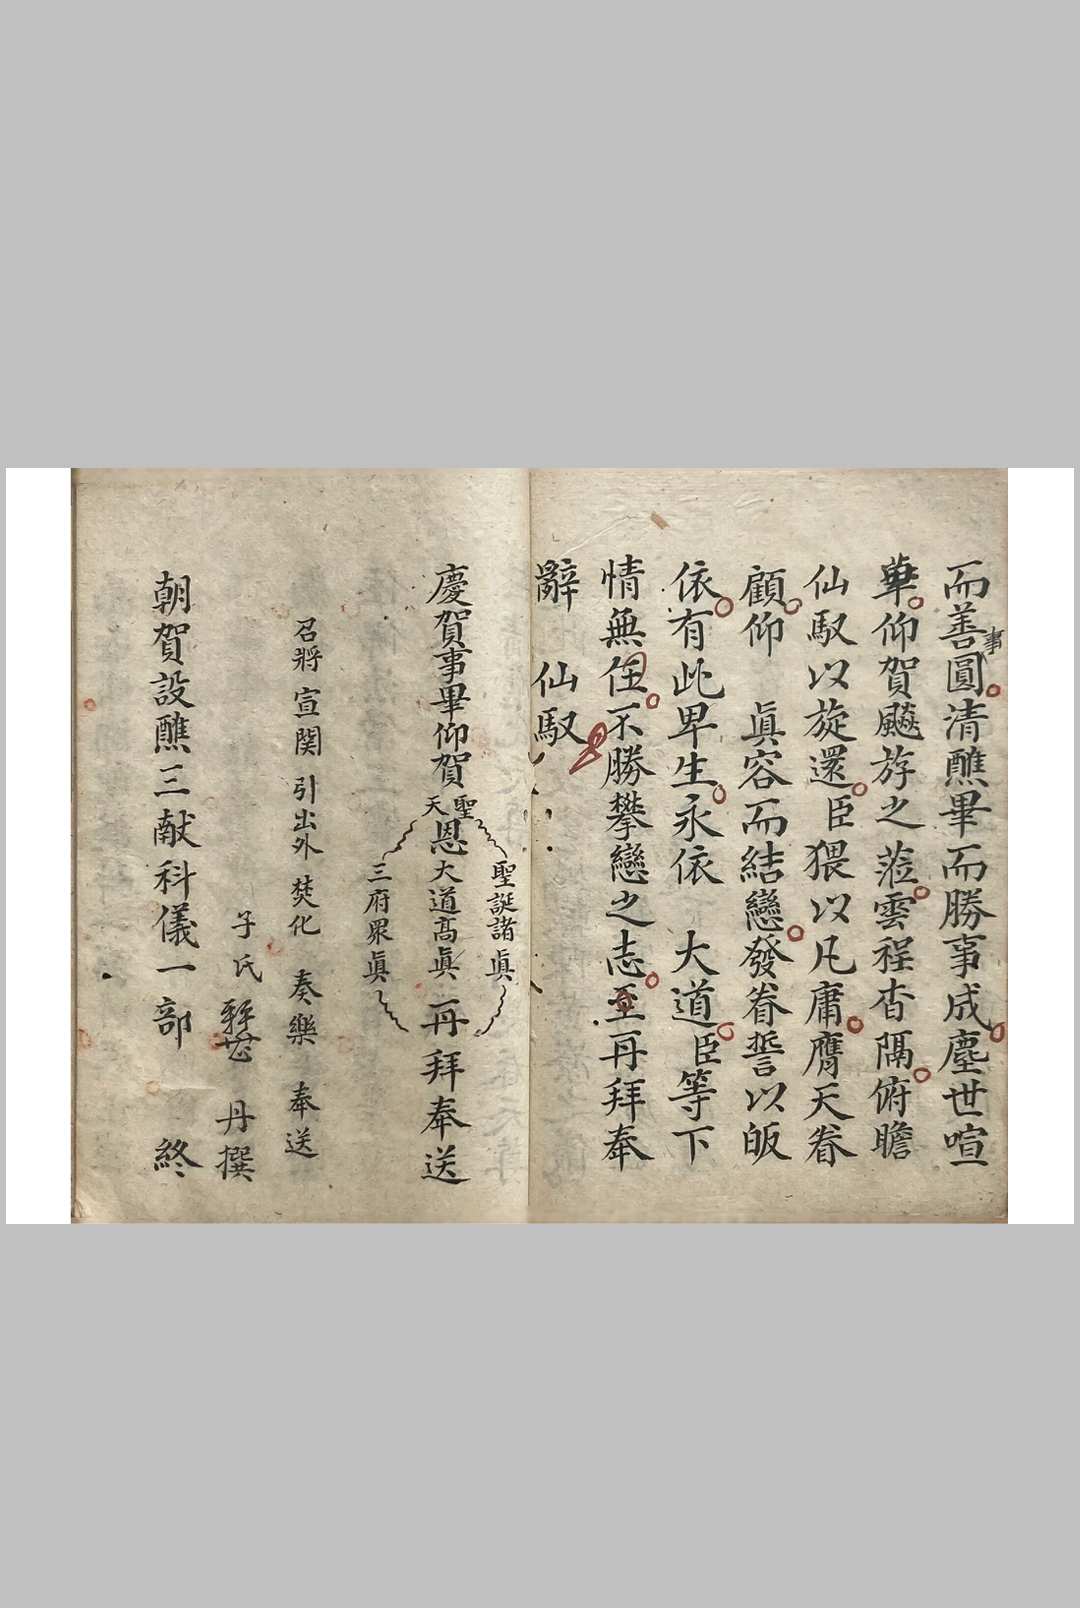 而善事圓清醮畢而勝事成塵世喧
華仰賀飈游之蒞雲程杳隔俯瞻
仙馭以旋還臣猥以凡庸膺天眷
顧仰 眞容而結戀發眷誓以皈
依有此卑生永依 大道臣等下
情無任不勝攀戀之志至再拜奉
辭 仙馭
聖誕諸眞
慶賀事畢仰賀聖天恩大道高眞 再拜奉送
三府眾眞
召將 宣関 引出外 焚化 奏樂 奉送
子氏 丹撰
朝賀設醮三献科儀一部 終